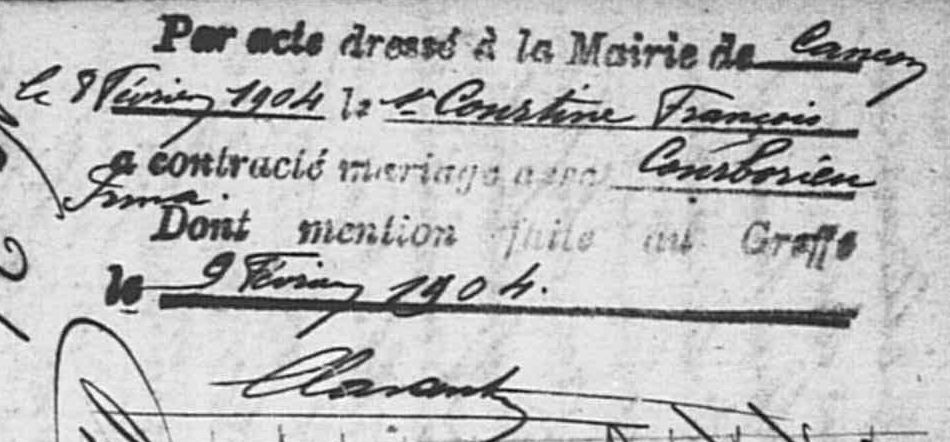 Par acte dressé à la Mairie de Cancon
le 8 Février 1904 le Sr Courtine François
a contracté mariage avec Courborieu
Irma.
Dont mention faite au Greffe
le 9 Février 1904.